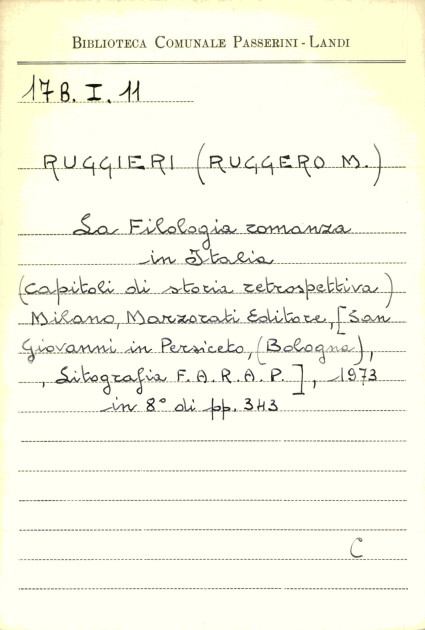 BIBLIOTECA COMUNALE PASSERINI - LANDI
178. I. 11
RUGGIERI (RUGGERO M.)
La Filologia romanza
in Italia
(capitoli di storia retrospettiva)
Milano, Marzorati Editore, [San
Giovanni in Persiceto, (Bologna),
, Litografia F.A.R.A.P.], 1973
in 8° di pp. 343
C